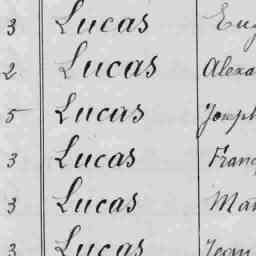 3 Lucas Eug
2 Lucas Alexa
5 Lucas Joseph
3 Lucas Franç
3 Lucas Mar
3 Lucas Jean